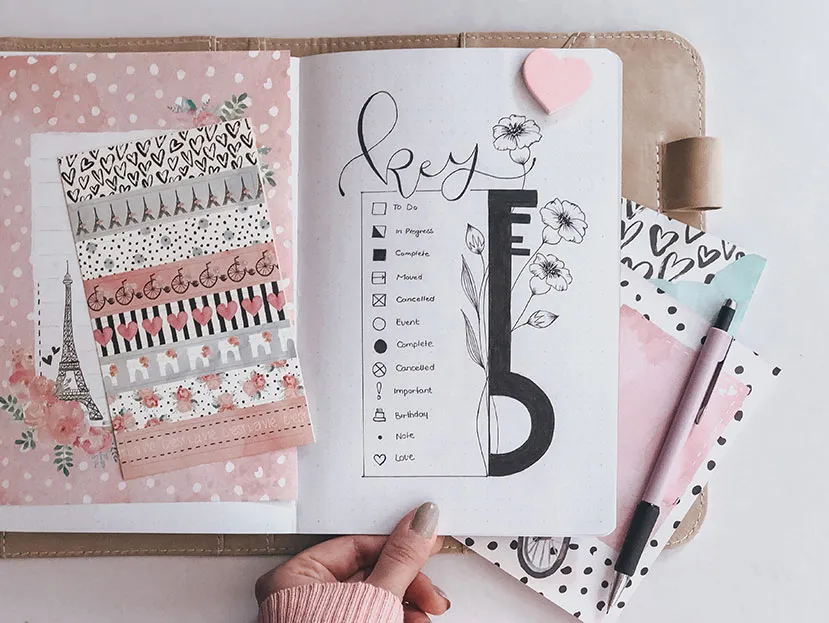 key
To Do
In Progress
Complete
Moved
Cancelled
Event
Complete
Cancelled
Important
Birthday
Note
Love